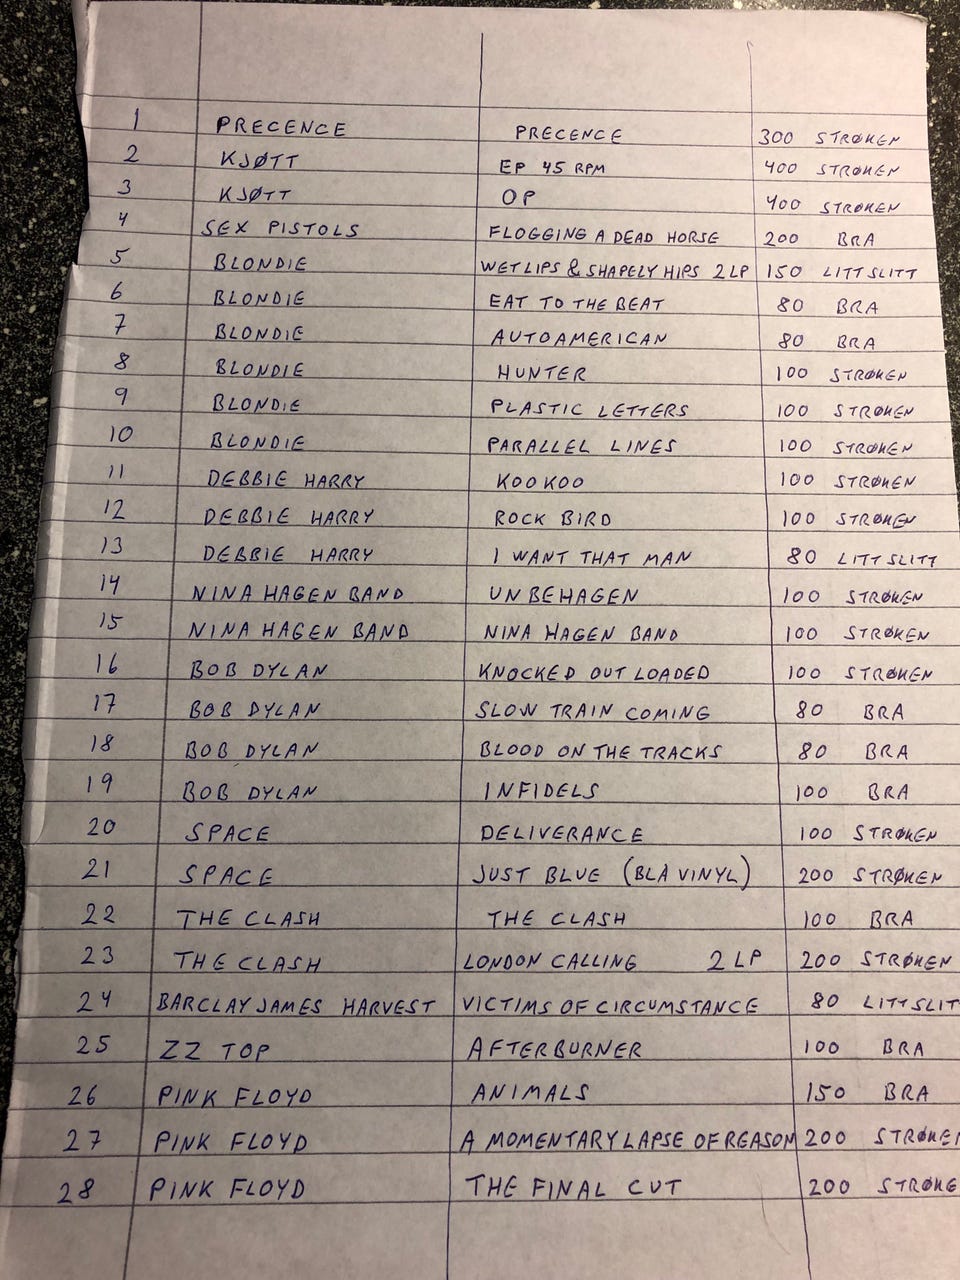 1 PRECENCE PRECENCE 300 STRØKEN
2 KJØTT EP 45 RPM 400 STRØKEN
3 KJØTT OP 400 STRØKEN
4 SEX PISTOLS FLOGGING A DEAD HORSE 200 BRA
5 BLONDIE WET LIPS & SHAPELY HIPS 2 LP 150 LITT SLITT
6 BLONDIE EAT TO THE BEAT 80 BRA
7 BLONDIE AUTOAMERICAN 80 BRA
8 BLONDIE HUNTER 100 STRØKEN
9 BLONDIE PLASTIC LETTERS 100 STRØKEN
10 BLONDIE PARALLEL LINES 100 STRØKEN
11 DEBBIE HARRY KOOKOO 100 STRØKEN
12 DEBBIE HARRY ROCK BIRD 100 STRØKEN
13 DEBBIE HARRY I WANT THAT MAN 80 LITT SLITT
14 NINA HAGEN BAND UNBEHAGEN 100 STRØKEN
15 NINA HAGEN BAND NINA HAGEN BAND 100 STRØKEN
16 BOB DYLAN KNOCKED OUT LOADED 100 STRØKEN
17 BOB DYLAN SLOW TRAIN COMING 80 BRA
18 BOB DYLAN BLOOD ON THE TRACKS 80 BRA
19 BOB DYLAN INFIDELS 100 BRA
20 SPACE DELIVERANCE 100 STRØKEN
21 SPACE JUST BLUE (BLÅ VINYL) 200 STRØKEN
22 THE CLASH THE CLASH 100 BRA
23 THE CLASH LONDON CALLING 2 LP 200 STRØKEN
24 BARCLAY JAMES HARVEST VICTIMS OF CIRCUMSTANCE 80 LITT SLIT
25 ZZ TOP AFTERBURNER 100 BRA
26 PINK FLOYD ANIMALS 150 BRA
27 PINK FLOYD A MOMENTARY LAPSE OF REASON 200 STRØKEN
28 PINK FLOYD THE FINAL CUT 200 STRØKE